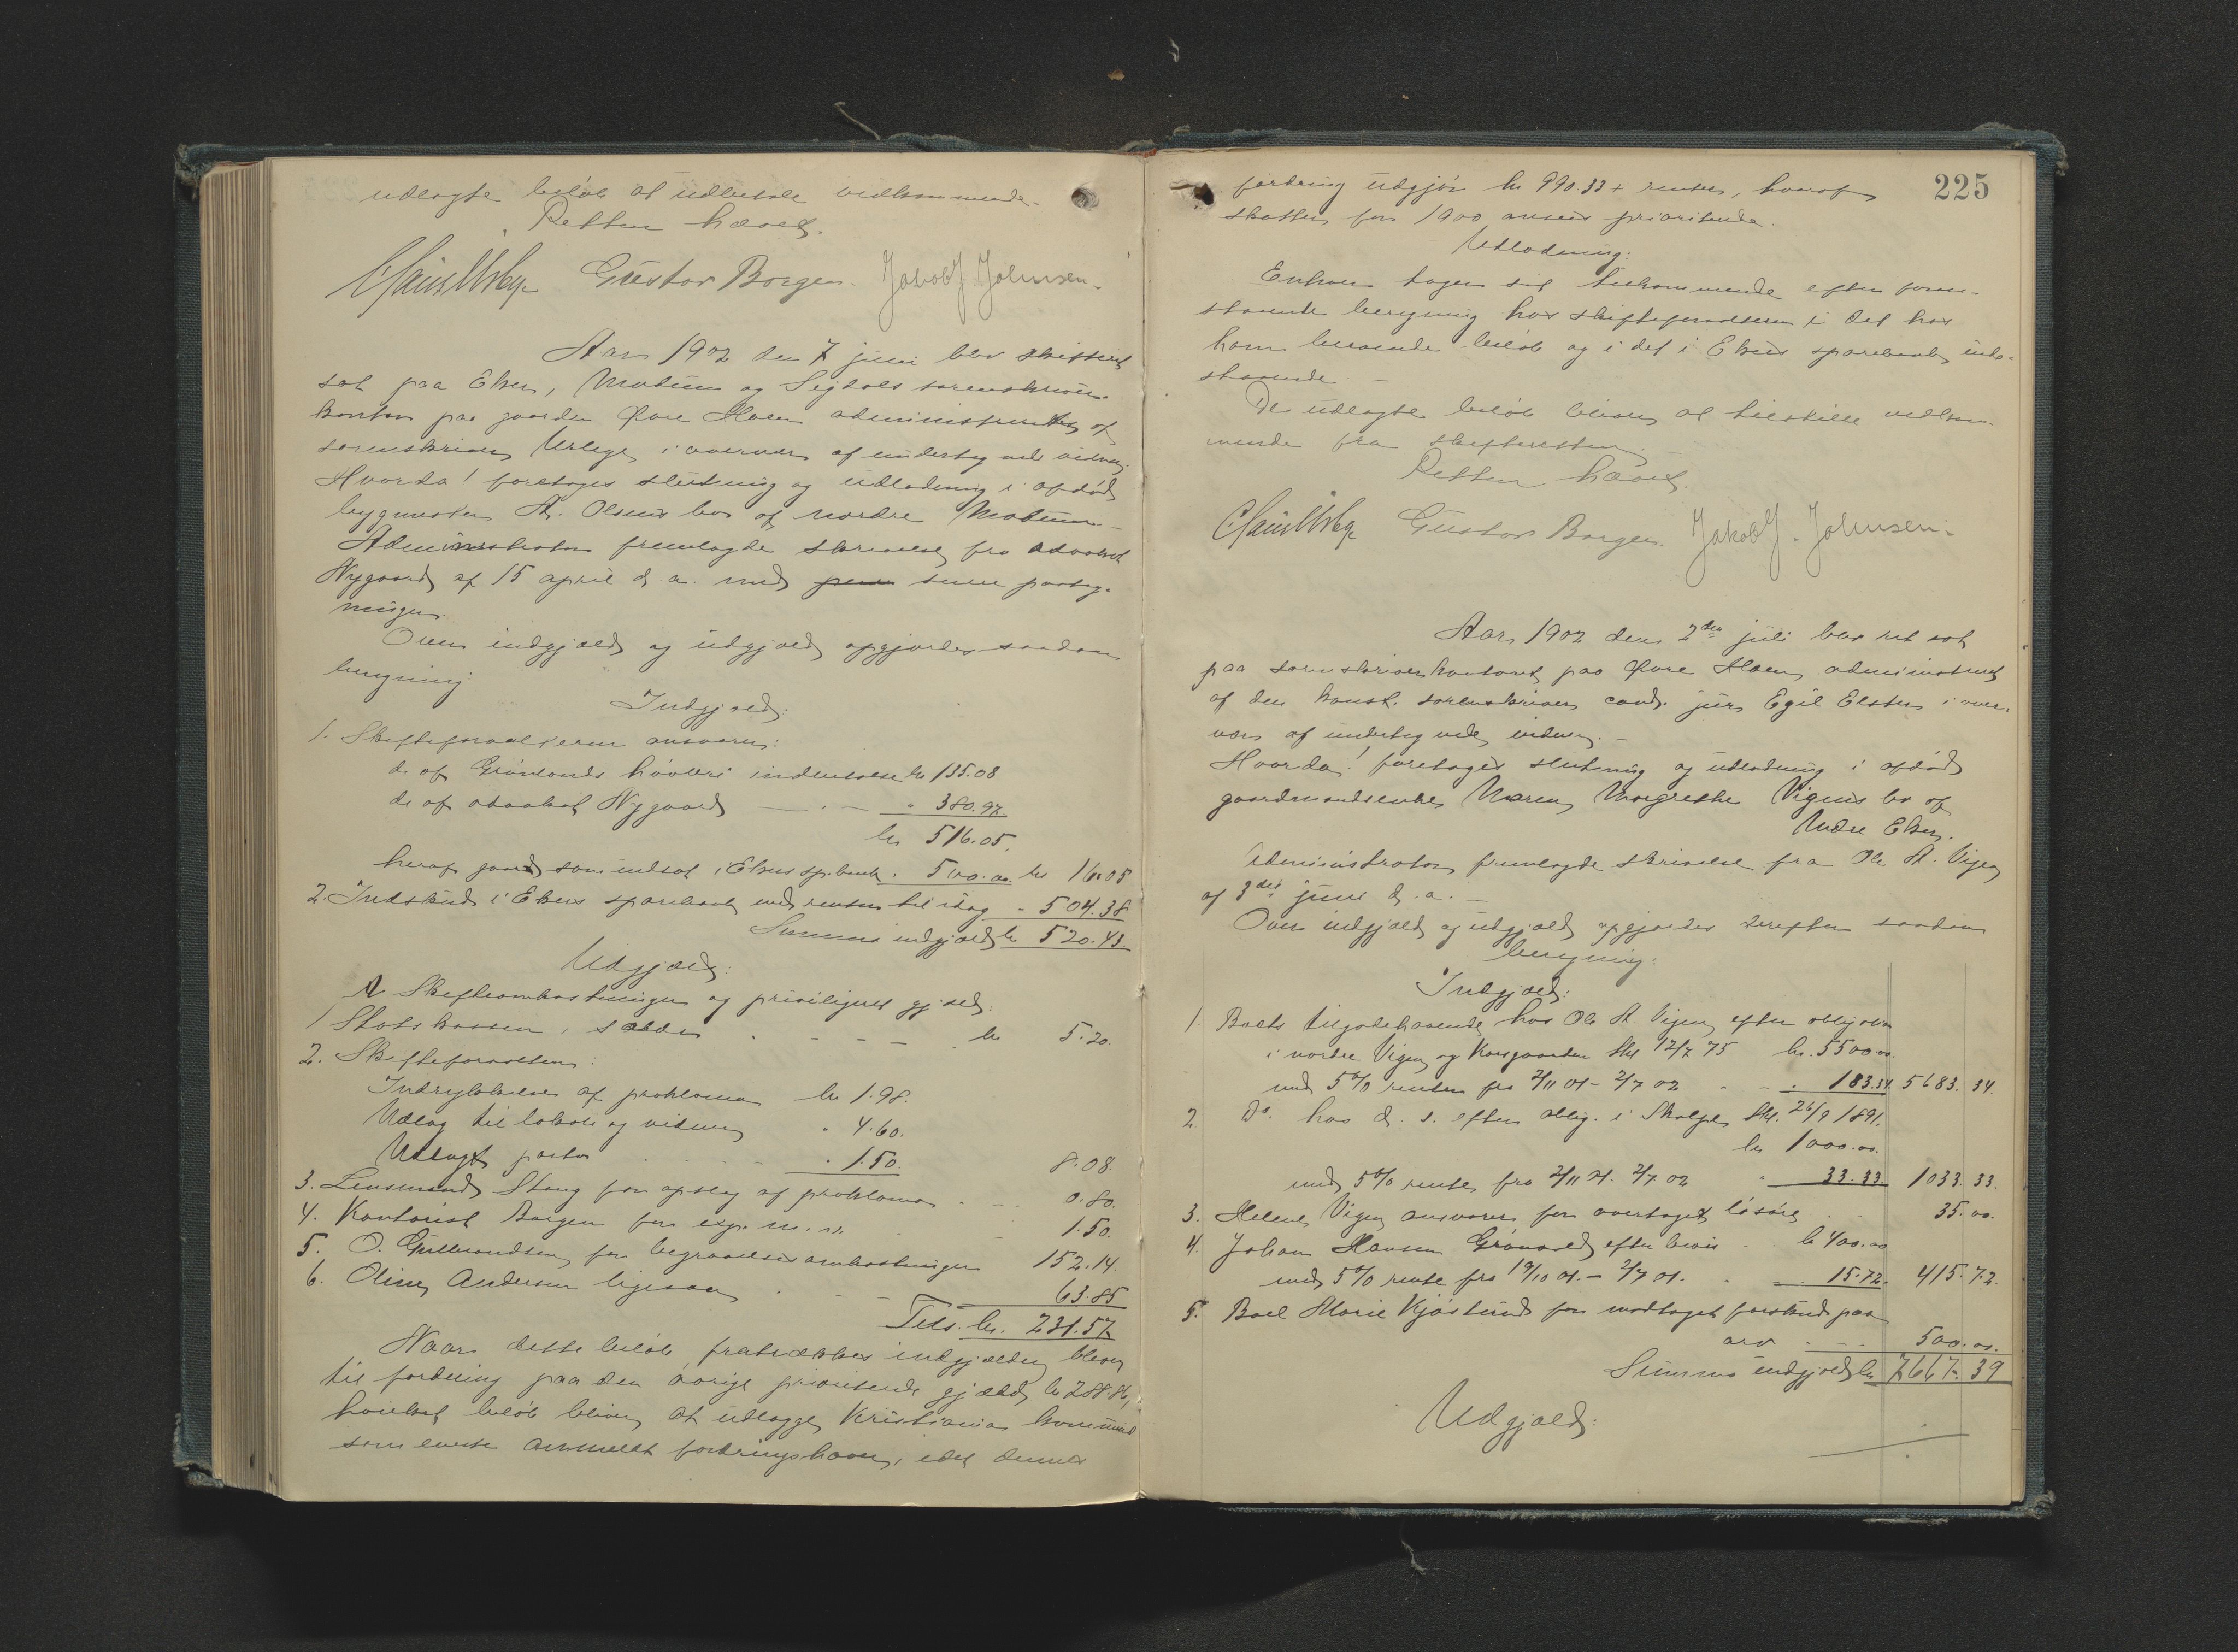 udlagte beløb at udbetale vedkommende.
Retten hævet.
Gustav Borgen. Jakob J. Johnsen.
Aar 1902 den 7 juni blev skifteret
sat paa Eker, Modum og Sigdals sorenskriver-
kontor paa gaarden Øvre Hoen administreret af
sorenskriver Urbye i overvær af undertegnede vidner.
Hvorda! foretages slutning og udlodning i afdøde
bygmester A. Olsens bo af nordre Modum.
Administrator fremlagde skrivelse fra advokat
Nygaard af 15 april d. a. med sine paateg-
ninger.
Over indgjæld og udgjæld opgjordes saadan
beregning:
Indgjæld:
1. Skifteforvalteren ansvarer:
de af Grønlands høvleri indbetalte kr 135.08
de af advokat Nygaard — " — " 380.97.
kr 516.05.
heraf gaar som indsat i Ekers sp.bank " 500.00 kr 16.05
2. Indskud i Ekers sparebank med renter til idag - 504.38
Summa indgjæld kr 520.43.
Udgjæld:
A Skifteomkostninger og priviligeret gjæld:
1 Statskassen, . - - - kr 5.20.
2. Skifteforvalteren:
Indrykkelse af proklama kr 1.98.
Udlag til lokale og vidner " 4.60.
Udlagt porto . . . - " 1.50. 8.08
3. Lensmand Stang for opslag af proklama . - - 0.80.
4. Kontorist Borgen for exp. m. v. . - 1.50.
5. O. Gulbrandsen for begravelsesomkostninger 152.14.
6. Oline Andersen ligesaa . - - 63.85
Tils. kr. 231.57
Naar dette beløb fratrækkes indgjælden bliver
til fordeling paa den øvrige prioriterede gjæld kr 288.86,
hvilket beløb bliver at udlægge Kristiania kommune
som eneste anmeldt fordringshaver, idet dennes
225
fordring udgjør kr 990.33 + renter, hvoraf
skatten for 1900 ansees prioriteret.
Udlodning:
Enhver tager sit tilkommende efter foran-
staaende beregning hos skifteforvalteren i det hos
ham beroende beløb og i det i Ekers sparebank inde-
staaende.
De udlagte beløb bliver at tilstille vedkom-
mende fra skifteretten.
Retten hævet.
Gustav Borgen. Jakob J. Johnsen.
Aar 1902 den 2den juli blev ret sat
paa sorenskriverkontoret paa Øvre Hoen, administreret
af den konst. sorenskriver cand. jur. Egil Elster i over-
vær af undertegnede vidner. -
Hvorda! foretages slutning og udlodning i afdøde
gaardmandsenke Maren Margrethe Vigens bo af
Nedre Eker.
Administrator fremlagde skrivelse fra Ole A. Vigen
af 3die juni d. a. -
Over indgjæld og udgjæld opgjordes derefter saadan
beregning:
Indgjæld:
1. Boets tilgodehavende hos Ole A Vigen efter obligation
i nordre Vigen og Korsgaarden tkl 12/7 75 kr. 5500.00.
med 5% renter fra 2/11 01 - 2/7 02 - - " 183.34. 5683. 34.
2 Do. hos d. s. efter oblig. i tkl. 26/9 1891.
kr 1000.00.
med 5% rente fra 2/11 01. 2/7 02 " 33.33. 1033. 33.
3. Helene Vigen ansvarer for overtaget løsøre . - 35. 00.
4. Johan Hansen Grønvold efter bevis - kr 400.00
med 5% rente fra 19/10 01. - 2/7 01. . - 15.72. 415. 72.
5. Boel Marie Kjøsterud for modtaget forskud paa
arv . - - 500. 00.
Summa indgjæld kr 7667. 39
Udgjæld: